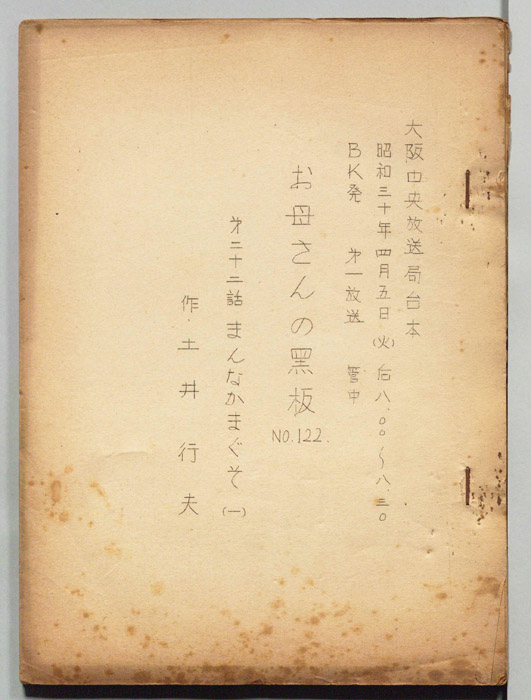 大阪中央放送局台本
昭和三十年四月五日(火)后八.〇〇~八.三〇
BK発 第一放送 管中
お母さんの黑板
NO.122.
第二十二話まんなかまぐそ(一)
作.土井行夫